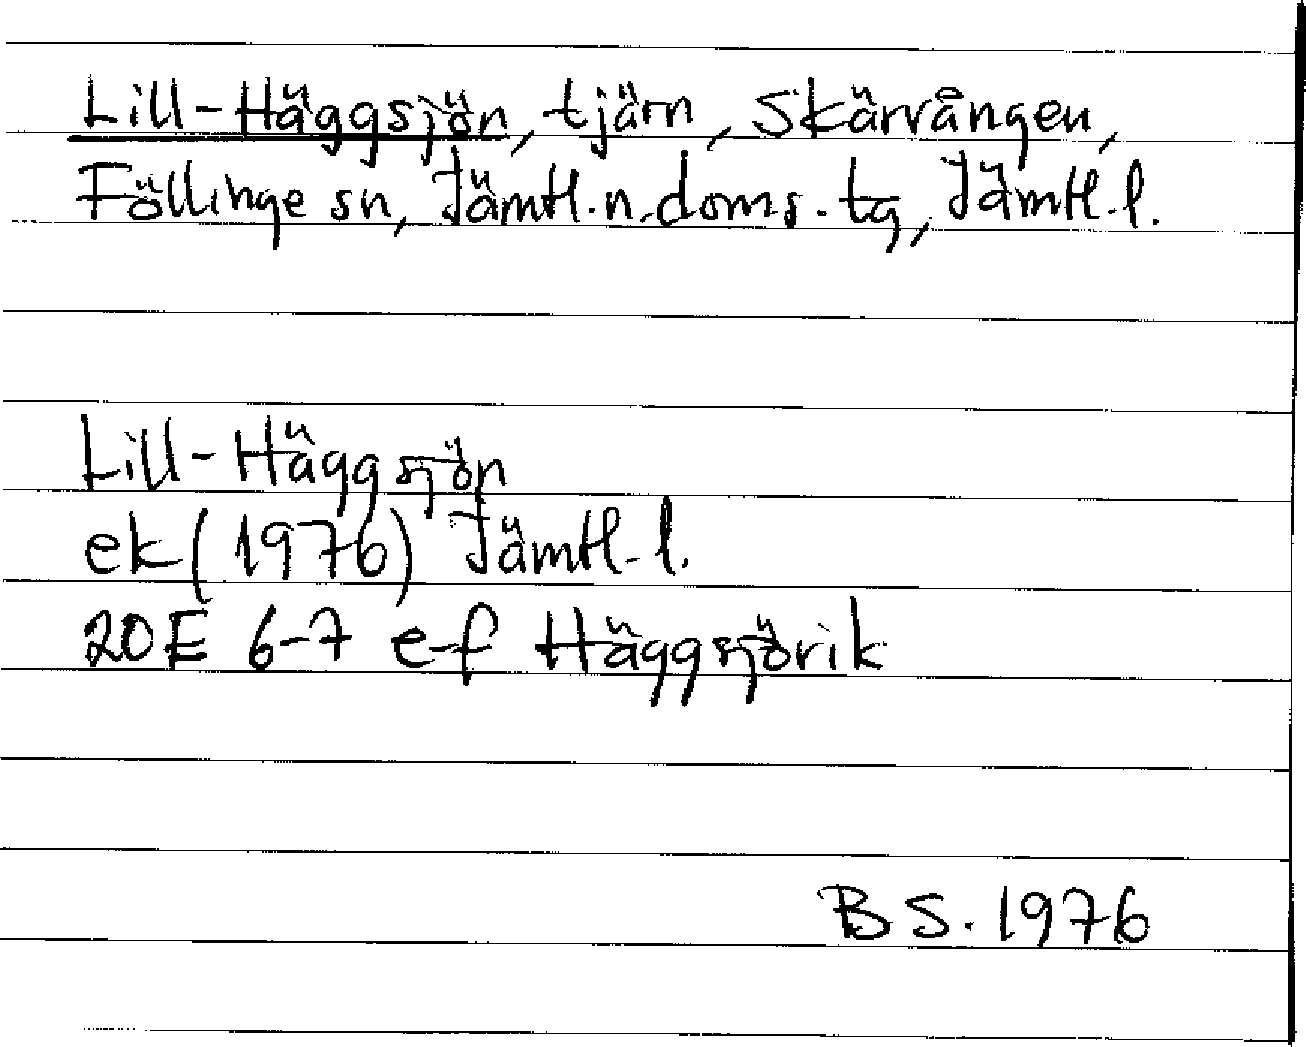 Lill-Häggsjön, tjärn, Skärvången,
Föllinge sn, Jämtl.n.doms.tg, Jämtl.l.
Lill-Häggsjön
ek (1976) Jämtl.l.
20E 6-7 e-f Häggsjövik
BS. 1976